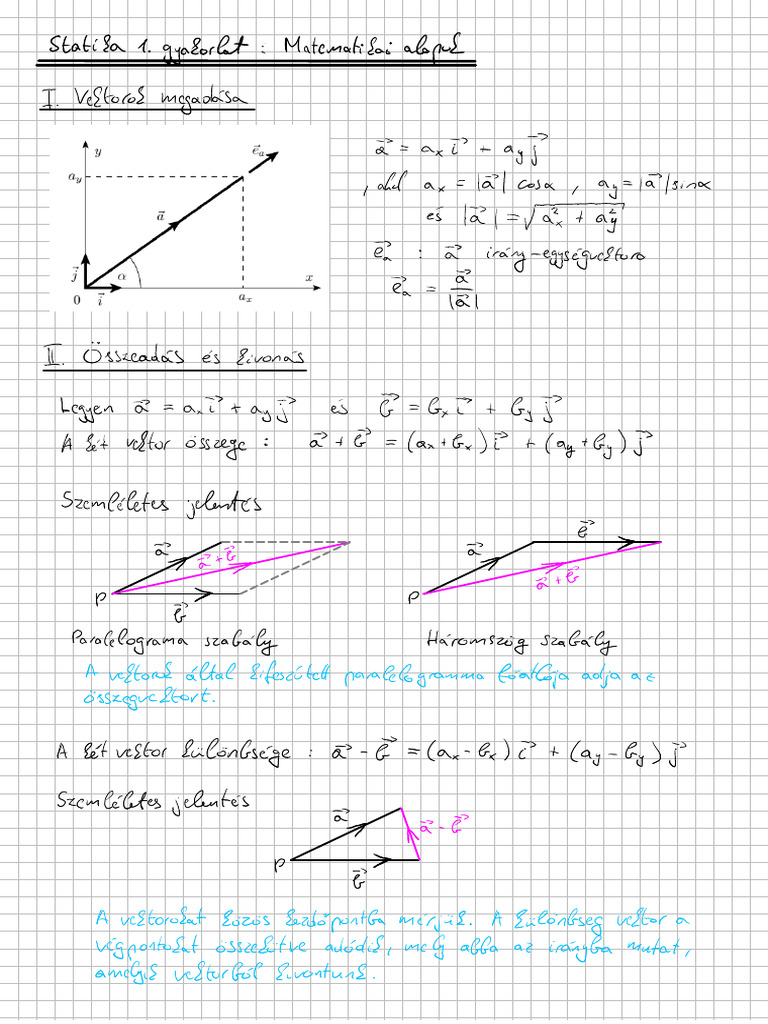 Statika 1. gyakorlat : Matematikai alapok
I. Vektorok megadása
y
e⃗ₐ
a_y
a⃗
j⃗
α
x
0
i⃗
a_x
a⃗ = a_x i⃗ + a_y j⃗
, ahol a_x = |a⃗| cosα , a_y = |a⃗| sinα
és |a⃗| = √(a_x² + a_y²)
e⃗ₐ : a⃗ irány-egységvektora
e⃗ₐ = a⃗ / |a⃗|
II. Összeadás és kivonás
Legyen a⃗ = a_x i⃗ + a_y j⃗ és b⃗ = b_x i⃗ + b_y j⃗
A két vektor összege : a⃗ + b⃗ = (a_x + b_x) i⃗ + (a_y + b_y) j⃗
Szemléletes jelentés
a⃗
a⃗ + b⃗
P
b⃗
b⃗
a⃗
a⃗ + b⃗
P
Paralelograma szabály
Háromszög szabály
A vektorok által kifeszített paralelogramma főátlója adja az
összegvektort.
A két vektor különbsége : a⃗ - b⃗ = (a_x - b_x) i⃗ + (a_y - b_y) j⃗
Szemléletes jelentés
a⃗
a⃗ - b⃗
P
b⃗
A vektorokat közös kezdőpontba mérjük. A különbség vektor a
végpontokat összekötve adódik, mely abba az irányba mutat,
amelyik vektorból kivontunk.